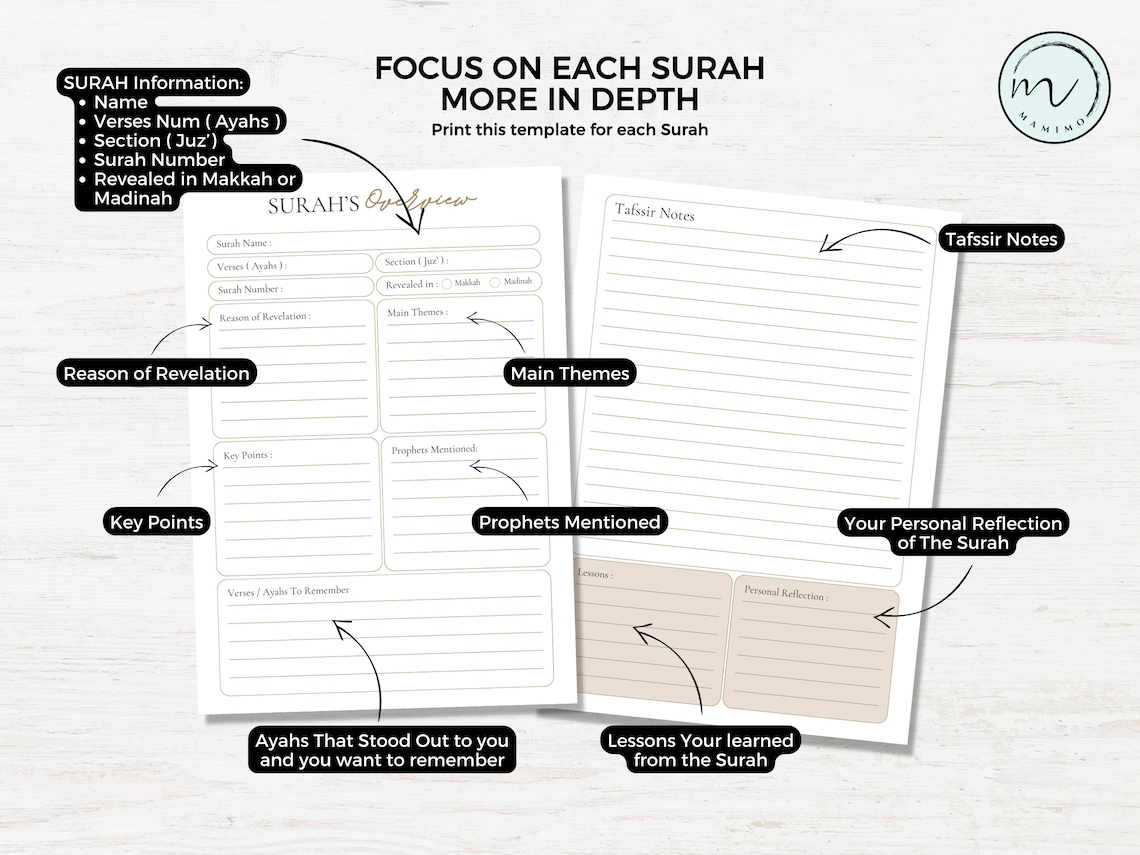 FOCUS ON EACH SURAH
MORE IN DEPTH
Print this template for each Surah
mv
MAMIMO
SURAH Information:
• Name
• Verses Num ( Ayahs )
• Section ( Juz’)
• Surah Number
• Revealed in Makkah or
Madinah
SURAH’S Overview
Surah Name :
Verses ( Ayahs ) :
Section ( Juz’ ) :
Surah Number :
Revealed in : Makkah Madinah
Reason of Revelation :
Main Themes :
Key Points :
Prophets Mentioned:
Verses / Ayahs To Remember
Reason of Revelation
Main Themes
Key Points
Prophets Mentioned
Ayahs That Stood Out to you
and you want to remember
Tafssir Notes
Lessons :
Personal Reflection :
Tafssir Notes
Your Personal Reflection
of The Surah
Lessons Your learned
from the Surah